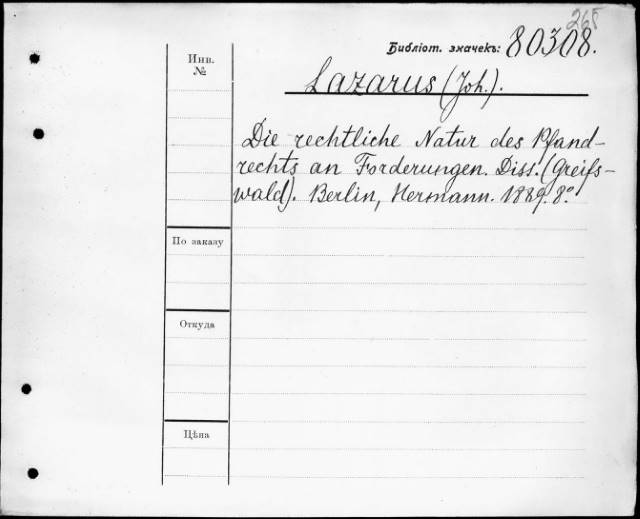 265
Библіот. значекъ: 80308.
Инв. №
Lazarus (Joh.).
Die rechtliche Natur des Pfand-
rechts an Forderungen. Diss. (Greifs-
wald). Berlin, Hermann. 1889. 8°.
По заказу
Откуда
Цѣна